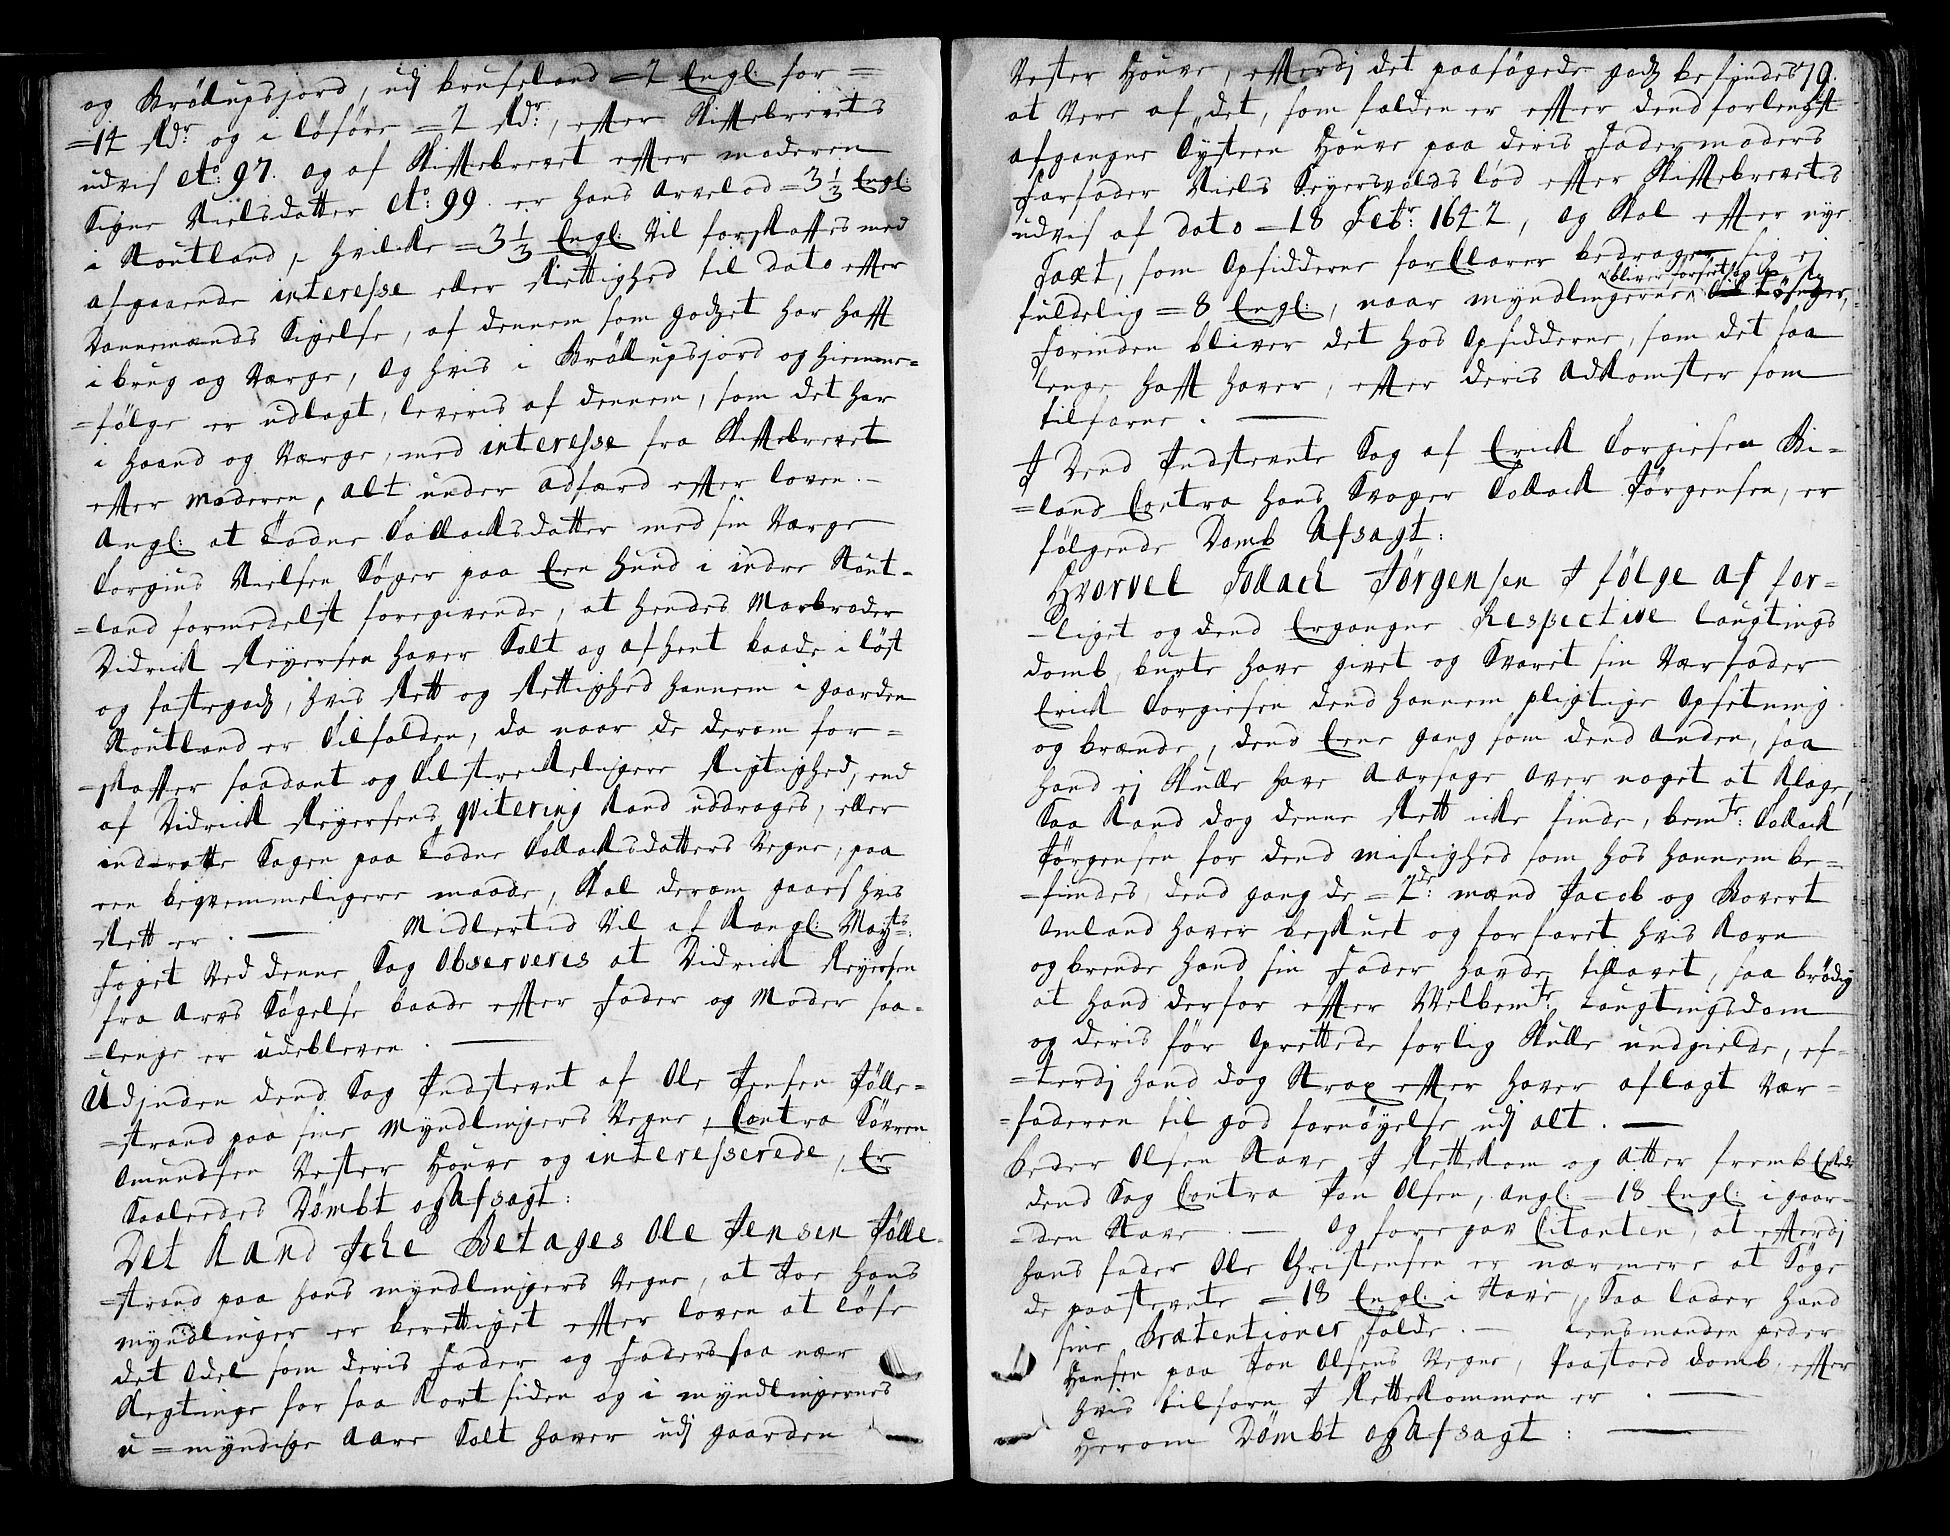 og Bröllupsjord, udj bruseland =2 Engl: for=
=14 Rdr og i löföre =2 Rdr:, efter Skiftebrevets
udvis Ao: 97. og af Skiftebrevet efter moderen
Signe Nielsdatter Ao: 99. er hans Arvelod =3 1/3 Engl:
i Stoutland, hvilke =3 1/3 Engl: Vil forskaffes med
afgaaende interesse eller Rettighed til dato efter
Dannemænds Sigelse, af dennem som godzet har hafft
i brug og Værge, og hvis i Bröllupsjord og hiemme=
=fölge er udlagt, leveris af dennem, som det har
i haand og Værge, med interesse fra Skiftebrevet
efter Moderen, alt under adfærd efter loven.
Angl: at Todne Tollachsdatter med sin Værge
Torgius Nielsen Söger paa Een Hund i indre Stout=
=land formedelst foregivende, at hendes Morbroder
Didrich Reyersen haver Solt og afhent baade i löst
og fastegodz, hvis Rett og Rettighed hannem i gaarden
Stoutland er Tilfalden, da naar de derom for=
=skaffer saadant og Tilstreckeligere Rigtighed, end
af Didrich Reyersens qvitering kand uddrages, eller
indrette Sagen paa Todne Tollachsdatters Vegne, paa
een beqvemmeligere maade, Skal derom gaaes hvis
Rett er. — Midlertid Vil af Kongl: Mayts:
Foget Ved denne Sag Observeris at Didrich Reyersen
fra Arvs Sögelse baade efter Fader og Moder saa=
=lenge er udebleven. —
Udjnden dend Sag Indstevnt af Ole Jensen Jölle=
=strand paa sine Myndlingers Vegne, Contra Sören
Omundsen Vester Houve og interesserede, Er
Saaledes Dömbt og Afsagt:
Det Kand Iche Betages Ole Jensen Jölle=
=strand paa hans myndlingers Vegne, at Jo hans
myndlinger er berettiget efter loven at löse
det Odel som deris Fader og Faders saa nær
Slegtinge for saa Kort siden og i myndlingernes
u=myndige Aare Solt haver udj gaarden
Vester Houve, efterdj det paasögede godz befindes 79.
at Vere af det, som falden er efter dend forlengst
afgangne Öysten Houve paa deris Fadermoders
Farfader Niels Seyersvolds lod efter Skiftebrevets
udvis af dato =18 Febr: 1642, og Skal efter nye
Taxt, som Opsidderne forclarer bedrage sig ej
fuldelig =8 Engl:, naar myndlingerne
forinden bliver det hos Opsidderne, som det saa
lenge hafft haver, efter deris Adkomster som
tilforne. —
I Dend Indstevnte Sag af Erich Torgiesen Bi=
=land Contra hans Svoger Tollach Jörgensen, er
fölgende Domb Afsagt:
Hvorvel Tollach Jörgensen I fölge af for=
=liget og dend Ergangne Respective Laugtings
domb, burte have givet og Svaret sin Værfader
Erich Torgiesen dend hannem pligtige Opsetning
og brænde, dend Eene gang som dend Anden, saa
hand ej Skulle have Aarsage over noget at Klage,
Saa Kand dog denne Rett icke finde, bemte: Tollach
Jörgensen for dend mislighed som hos hannem be=
=findes, dend gang de =2de: mænd Jacob og Kovert
Omland haver beskuet og forfaret hvis Korn
og brende hand sin Fader havde tillavet, saa brödig
at hand derfor efter Velbemte: Laugtingsdom
og deris för Oprettede forlig Skulle undgielde, ef=
=terdj hand dog Strax efter haver aflagt Vær=
=faderen til god fornöyelse udj alt. —
Peder Olsen Stave I Rettekom og Atter fremb Eskede
dend Sag Contra Jon Olsen, Angl: =18 Engl: i gaar=
=den Stave. — Og foregav Citanten, at efterdj
hans fader Ole Christensen er nærmere at Söge
de paastevnte =18 Engl: i Stave, Saa lader hand
sine Prætentioner falde. — Lensmanden Peder
Hansen paa Jon Olsens Vegne, Paastoed Domb, efter
hvis tilforn I Rettekommen er. —
Herom Dömbt og Afsagt: —